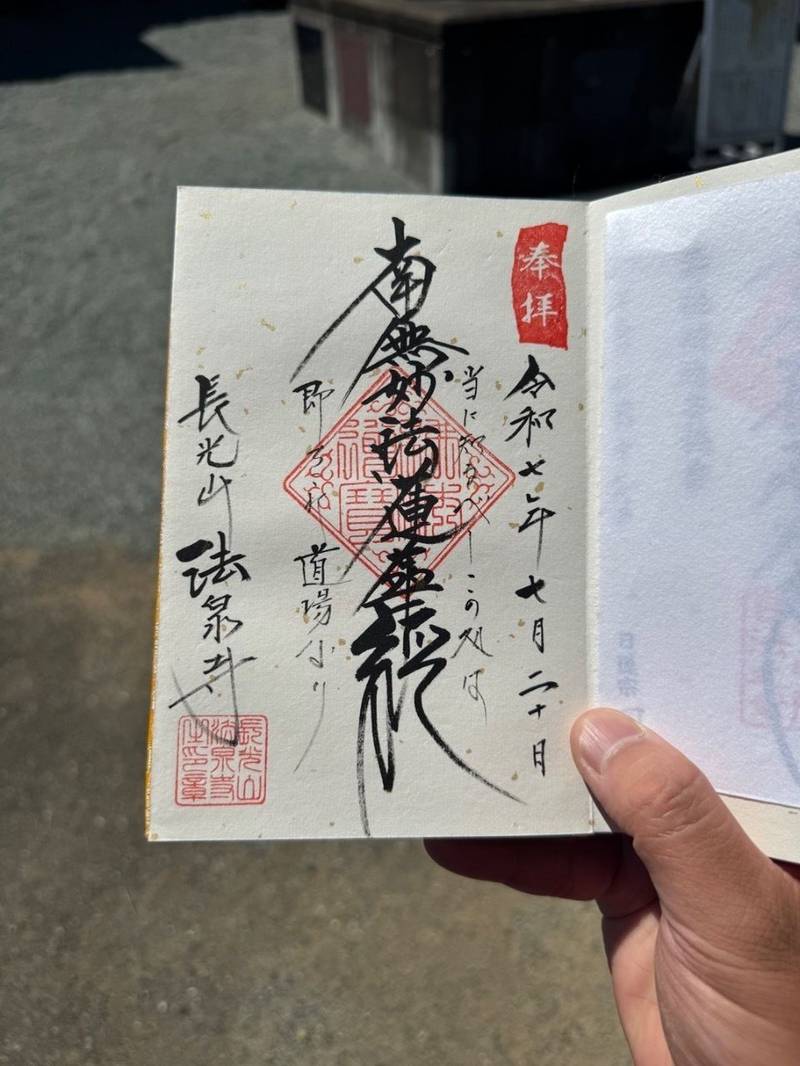 奉拝
令和七年七月二十日
当に知るべしこの処は
南無妙法蓮華経
即是 道場なり
長光山 法泉寺
長光山
法泉寺
之印章